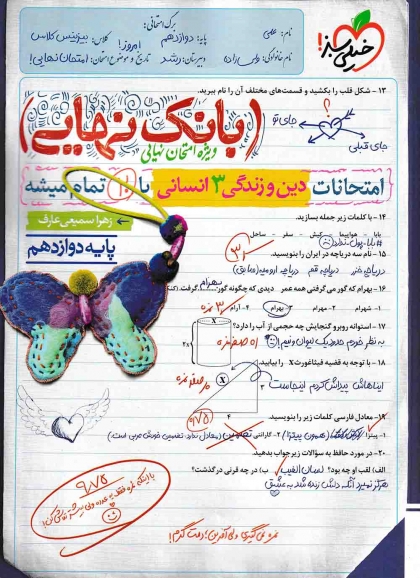 برگ امتحانی:
نام: علی
پایه: دوازدهم
کلاس: بیزنس کلاس
خیلی سبز!
نام خانوادگی: ولی‌زاده
دبیرستان: رشد
تاریخ و موضوع امتحان: امروز! امتحان نهایی!
۱۳- شکل قلب را بکشید و قسمت‌های مختلف آن را نام ببرید.
؟
جای تو
جای قبلی
(بانک نهایی)
ویژه امتحان نهایی
امتحانات دین و زندگی ۳ انسانی با ۱۱ تمام میشه
زهرا سمیعی عارف
پایه دوازدهم
۱۴- با کلمات زیر جمله بسازید.
بابا - هواپیما - کیش - سفر - ساحل
۱۵- نام سه دریاچه در ایران را بنویسید.
دریاچه خزر دریاچه قم دریاچه ارومیه (سابق)
۱۶- بهرام که گور می‌گرفتی همه عمر دیدی که چگونه گور بهرام گرفت.
۱- شهرام ۲- بهرام ۳- بهرام ۴- آرام
۱۷- استوانه روبرو گنجایش چه حجمی از آب را دارد؟
به نظر خودم حدود یک لیوان و نیم
۱۸- با توجه به قضیه فیثاغورث X را بیابید.
ایناهاش پیداش کردم اینجاست
X
۳
۴
۹/۷۵
۱۹- معادل فارسی کلمات زیر را بنویسید.
۱- پیتزا
(همون پیتزا)
۲- گارانتی
تضمین
(معادل ندارد. تضمین خودش عربی است.)
۲۰- در مورد حافظ به سؤالات زیر جواب بدهید.
الف) لقب او چه بود؟ لسان الغیب
ب) در چه قرنی درگذشت؟
هرگز نمیرد آنکه دلش زنده شد به عشق
۹/۷۵
نمره نمی‌گیری ولی آفرین! دمت گرم!